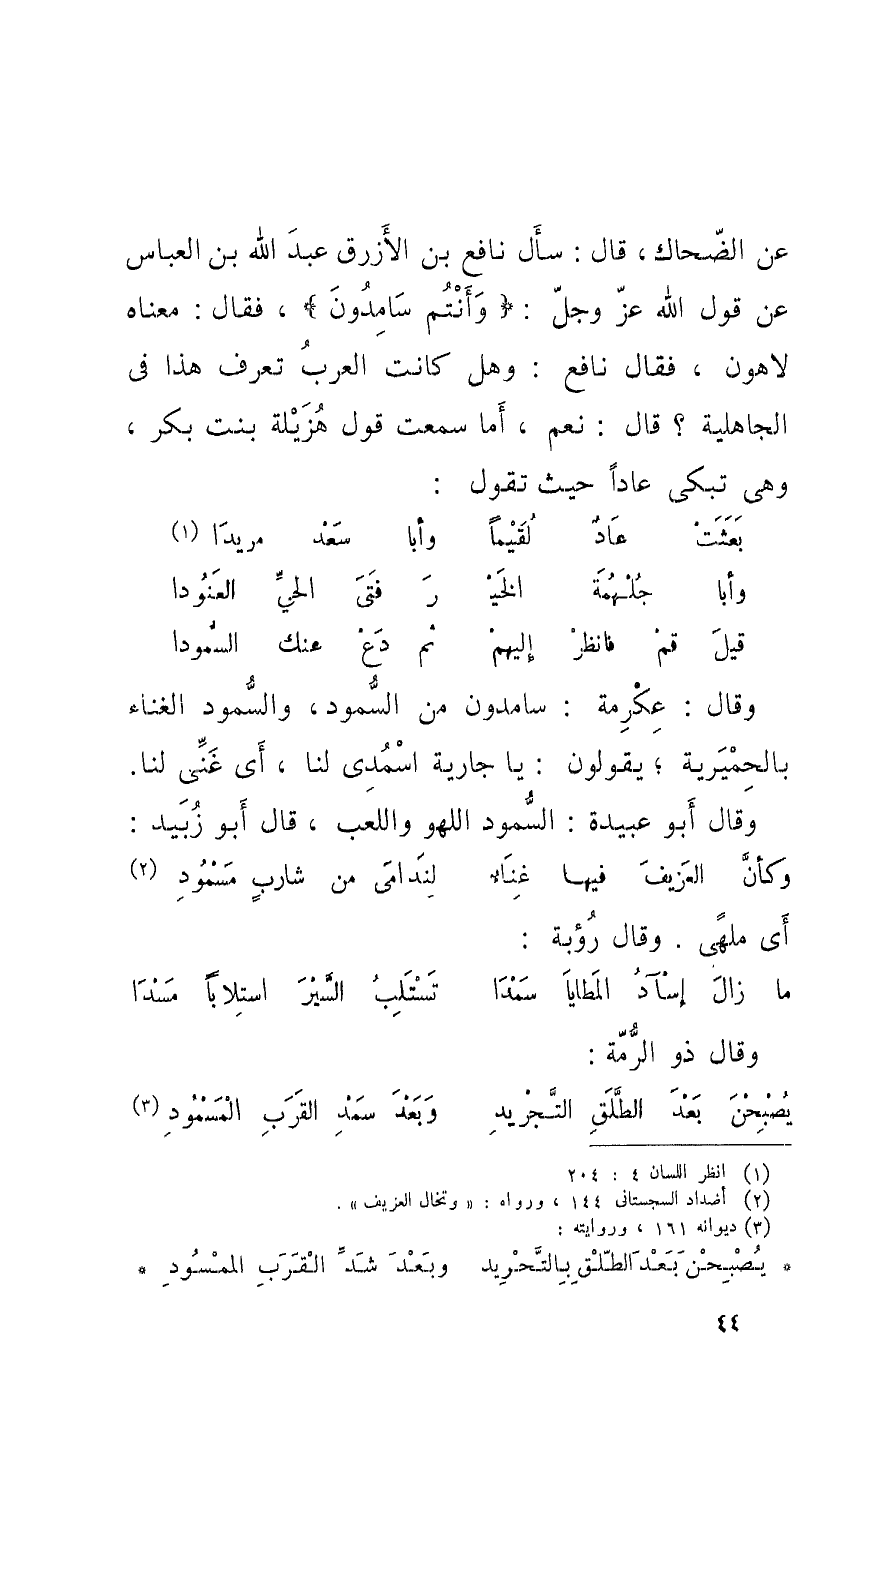 عن الضّحاك ، قال : سأَل نافع بن الأَزرق عبدَ الله بن العباس
عن قول الله عزّ وجلّ : ﴿ وَأَنْتُم سَامِدُونَ ﴾ ، فقال : معناه
لاهون ، فقال نافع : وهل كانت العربُ تعرف هذا فى
الجاهلية ؟ قال : نعم ، أَما سمعت قول هُزَيْلة بنت بكر ،
وهى تبكى عاداً حيث تقول :
بَعَثَتْ عَادٌ لُقَيْماً وأبا سَعْد مريدَا (١)
وأبا جُلْهُمَةَ الخَيْ رَ فَتَى الحيِّ العَنُودا
قيلَ قمْ فانظرْ إليهمْ ثم دَعْ عنك السُّمودا
وقال : عِكْرِمة : سامدون من السُّمود ، والسُّمود الغناء
بالحِمْيَرية ؛ يقولون : يا جارية اسْمُدِى لنا ، أَى غَنِّى لنا .
وقال أَبو عبيدة : السُّمود اللهو واللعب ، قال أَبو زُبَيد :
وكأنَّ العَزيفَ فيها غِنَاء لِنَدامَى من شاربٍ مَسْمُودِ (٢)
أَى ملهًى . وقال رُؤبة :
ما زالَ إسْآدُ المَطاياَ سَمْدَا تَسْتَلِبُ السَّيْرَ استلاباً مَسْدَا
وقال ذو الرُّمّة :
يُصْبِحْنَ بَعْدَ الطَّلَقِ التَّجْريدِ وَبَعْدَ سَمْدِ القَرَبِ الْمَسْمُودِ (٣)
(١) انظر اللسان ٤ : ٢٠٤
(٢) أضداد السجستانى ١٤٤ ، ورواه : « وتخال العزيف » .
(٣) ديوانه ١٦١ ، وروايته :
* يُصْبِحْنَ بَعْدَ الطّلْقِ بِالتَّحْرِيد وبَعْدَ شَدِّ الْقَرَبِ الممْسُودِ *
٤٤